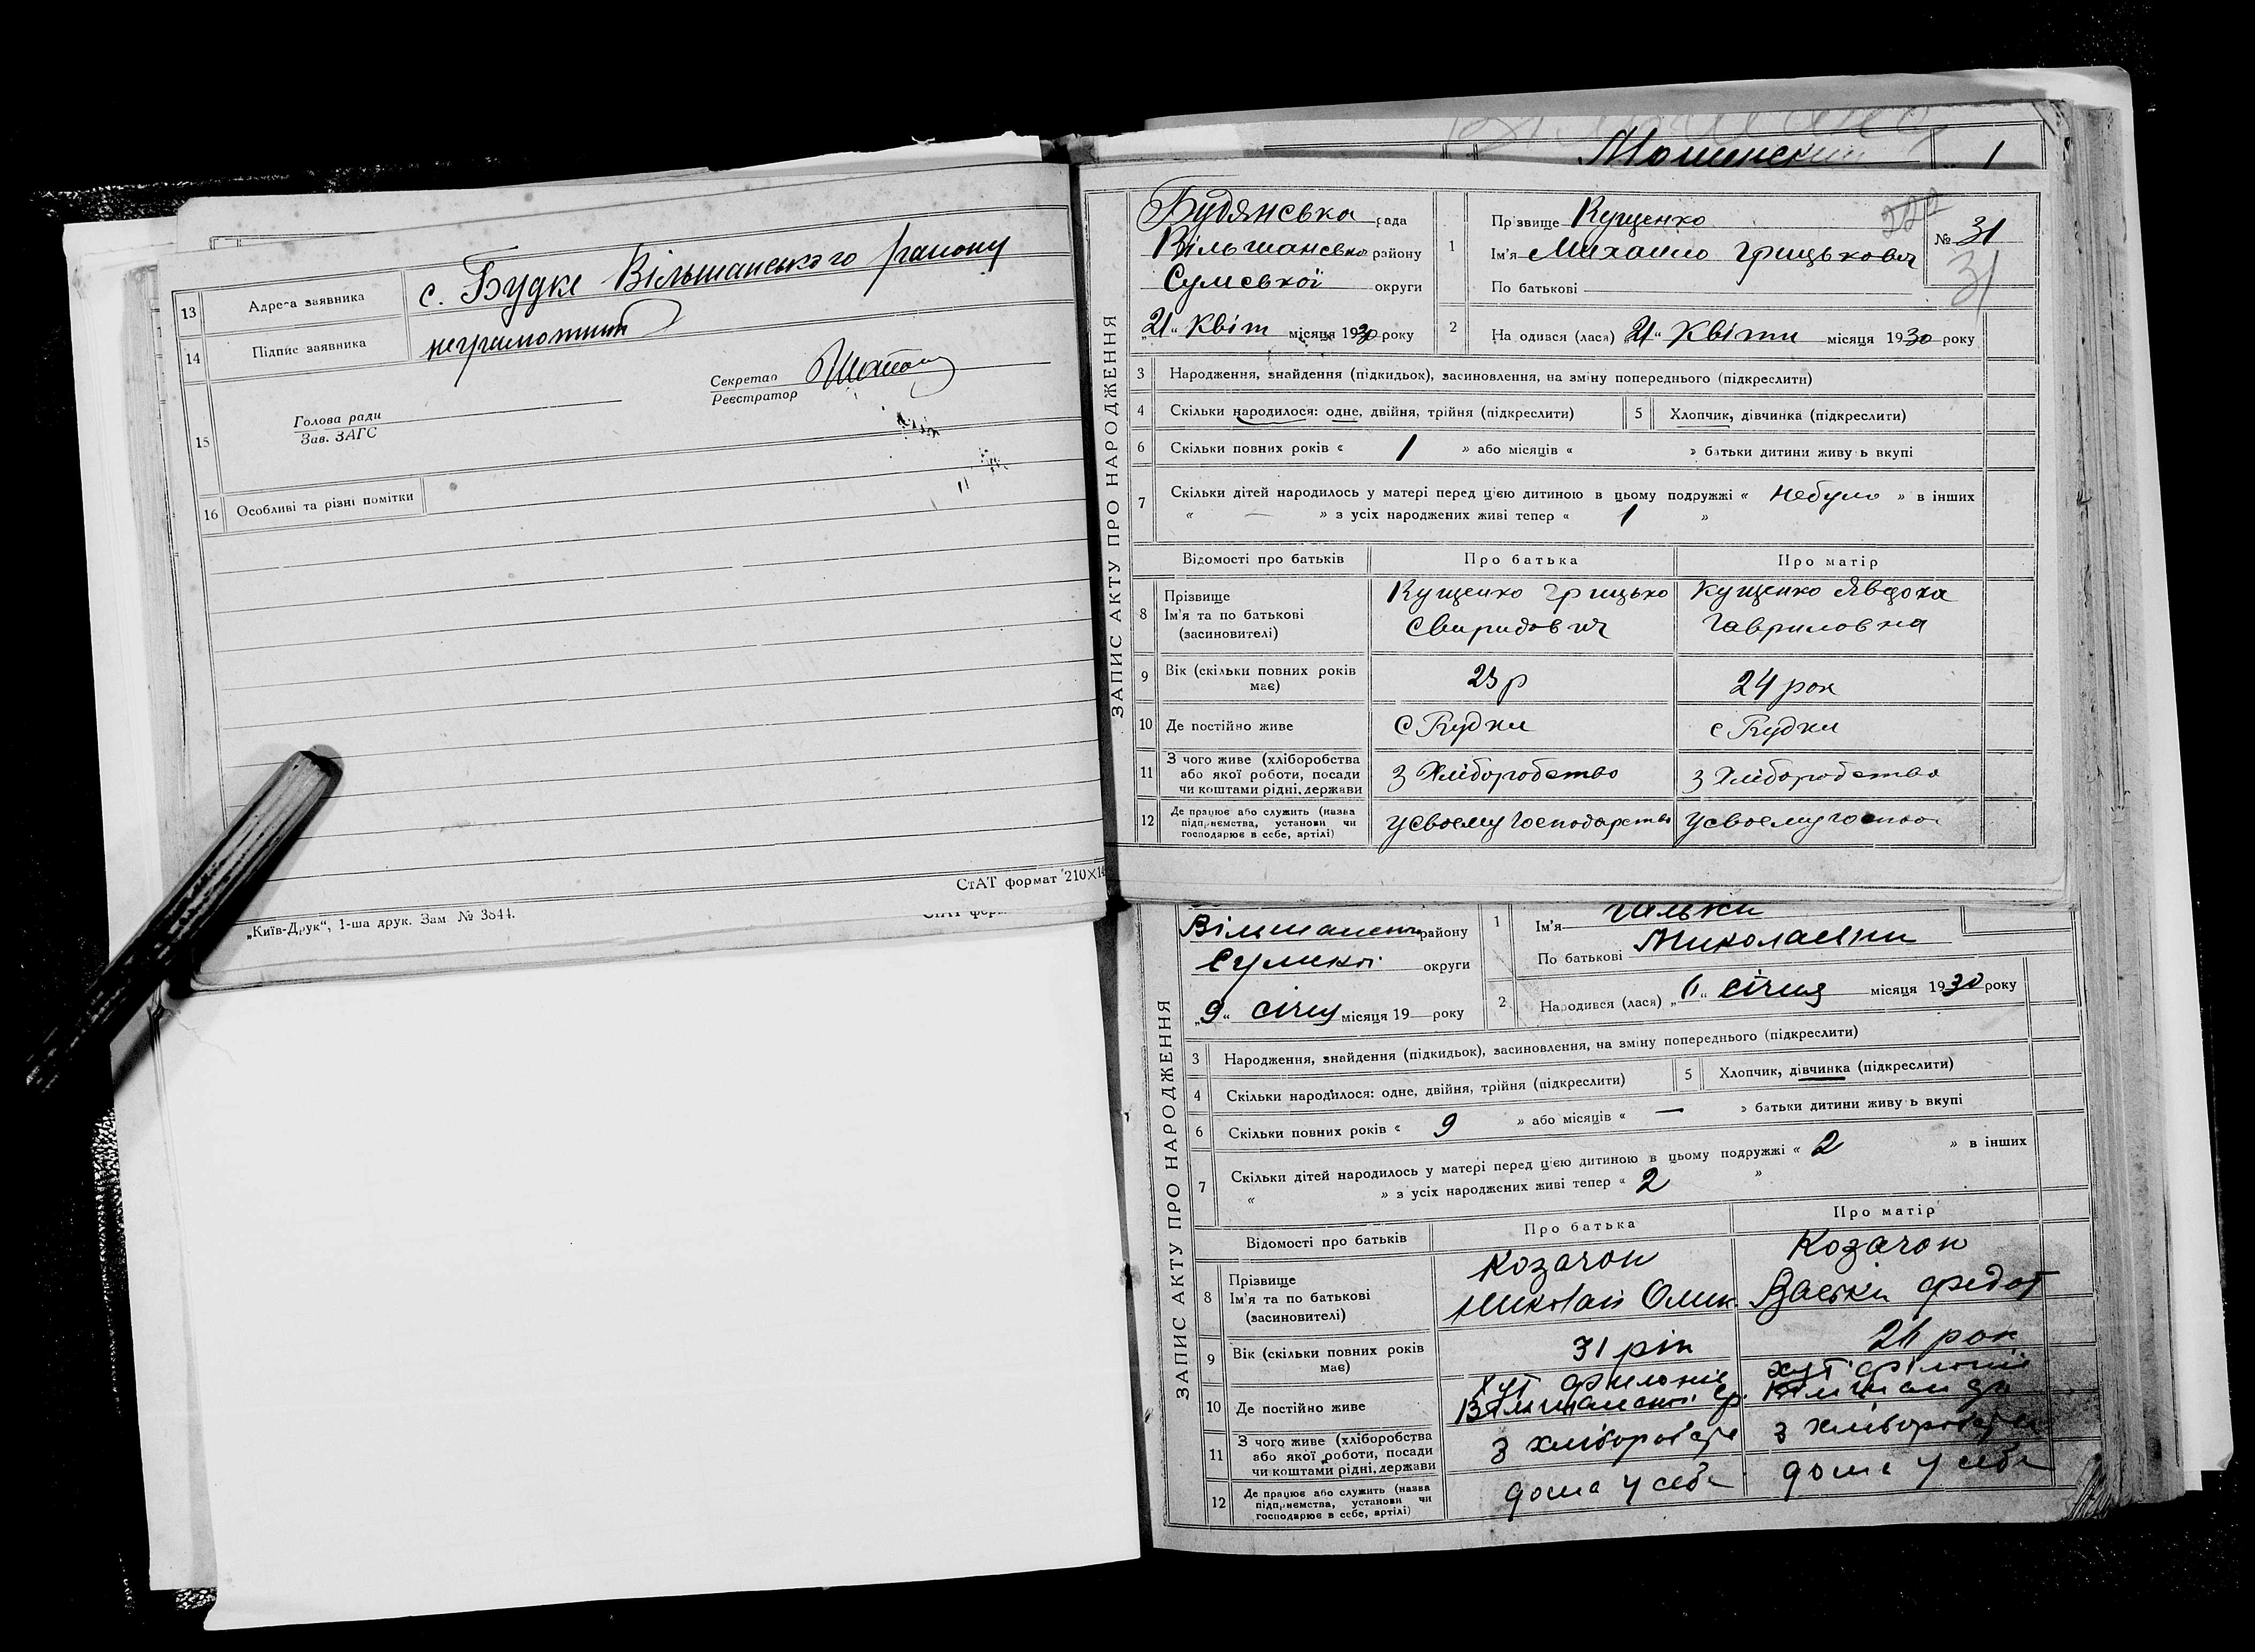 13 Адреса заявника с. Будке Вільшанського району
14 Підпис заявника неграмотний
Секретар
Реєстратор
15 Голова ради
Зав. ЗАГС
16 Особливі та різні помітки
СтАТ формат 210×14
„Київ-Друк“, 1-ша друк. Зам № 3844.
1
ЗАПИС АКТУ ПРО НАРОДЖЕННЯ
Будянська рада
Вільшанська району
Сумської округи
„21“ Квіт місяця 1930 року
1 Прізвище Кущенко
Ім'я Михайло Грицькович
По батькові
№ 31
31
2 На одився (лася) „21“ Квітни місяця 1930 року
3 Народження, знайдення (підкидьок), засиновлення, на зміну попереднього (підкреслити)
4 Скільки народилося: одне, двійня, трійня (підкреслити) 5 Хлопчик, дівчинка (підкреслити)
6 Скільки повних років « 1 » або місяців « » батьки дитини живу ь вкупі
7 Скільки дітей народилось у матері перед цією дитиною в цьому подружжі « небуло » в інших
« — » з усіх народжених живі тепер « 1 »
Відомості про батьків Про батька Про матір
8 Прізвище Ім'я та по батькові (засиновителі)
Кущенко Грицько Свиридович
Кущенко Явдоха Гавриловна
9 Вік (скільки повних років має) 23 р 24 рок
10 Де постійно живе с Будки с Будки
11 З чого живе (хліборобства або якої роботи, посади чи коштами рідні, держави З Хліборобство З Хліборобство
12 Де працює або служить (назва підприємства, установи чи господарює в себе, артілі) Усвоему господарство Усвоему господ
Вільшанськ району
Сумської округи
„9“ січну місяця 19 року
1 Ім'я Гальки
По батькові Миколаєни
2 Народився (лася) січня місяця 1930 року
ЗАПИС АКТУ ПРО НАРОДЖЕННЯ
3 Народження, знайдення (підкидьок), засиновлення, на зміну попереднього (підкреслити)
4 Скільки народилося: одне, двійня, трійня (підкреслити) 5 Хлопчик, дівчинка (підкреслити)
6 Скільки повних років « 9 » або місяців « — » батьки дитини живу ь вкупі
7 Скільки дітей народилось у матері перед цією дитиною в цьому подружжі « 2 » в інших
« » з усіх народжених живі тепер « 2 »
Відомості про батьків Про батька Про матір
8 Прізвище Ім'я та по батькові (засиновителі)
Козачок Николай
Козачок Федот
9 Вік (скільки повних років має) 31 рік рок
10 Де постійно живе хут хут
11 З чого живе (хліборобства або якої роботи, посади чи коштами рідні, держави З хліборобств З хліборобств
12 Де працює або служить (назва підприємства, установи чи господарює в себе, артілі) дома у себе дома у себе